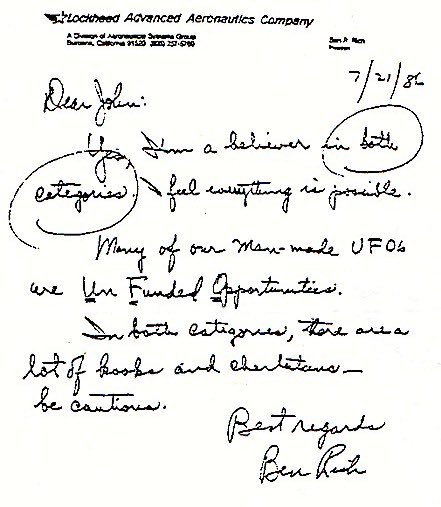 Lockheed Advanced Aeronautics Company
A Division of Aeronautical Systems Group
Burbank, California 91520
Ben R. Rich
President
7/21/86
Dear John:
Yes, I'm a believer in both
categories. I feel everything is possible.
Many of our man-made UFO's
are Un Funded Opportunities.
In both categories, there are a
lot of kooks and charlatans —
be cautious.
Best regards
Ben Rich